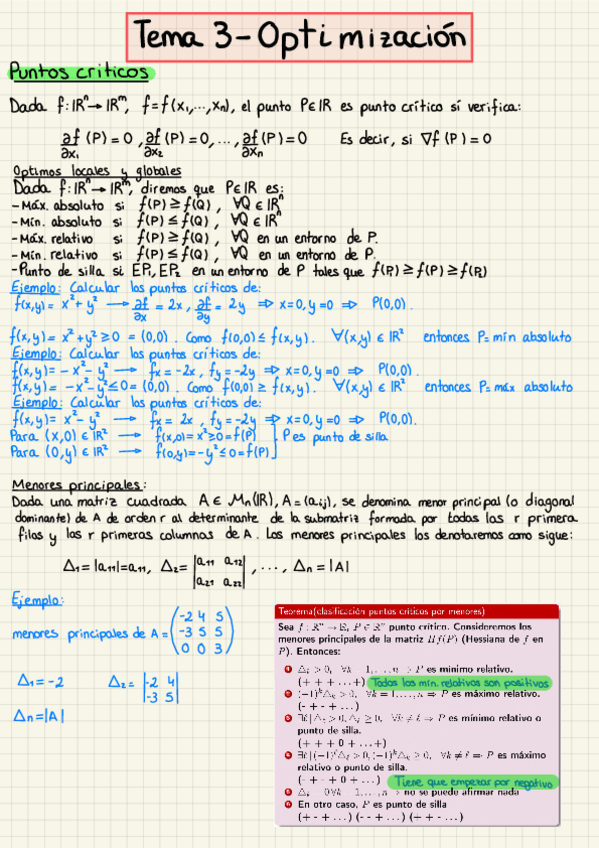 Tema 3 - Optimización
Puntos criticos
Dada f: IRⁿ → IRᵐ, f = f(x₁,...,xₙ), el punto P∈IR es punto crítico sí verifica:
∂f/∂x₁ (P) = 0, ∂f/∂x₂ (P) = 0, ..., ∂f/∂xₙ (P) = 0 Es decir, si ∇f (P) = 0
Optimos locales y globales
Dada f: IRⁿ → IRᵐ, diremos que P∈IR es:
- Máx. absoluto si f(P) ≥ f(Q), ∀Q ∈ IRⁿ
- Mín. absoluto si f(P) ≤ f(Q), ∀Q ∈ IRⁿ
- Máx. relativo si f(P) ≥ f(Q), ∀Q en un entorno de P.
- Mín. relativo si f(P) ≤ f(Q), ∀Q en un entorno de P.
- Punto de silla si EP₁, EP₂ en un entorno de P tales que f(P₁) ≥ f(P) ≥ f(P₂)
Ejemplo: Calcular los puntos críticos de:
f(x,y) = x² + y² → ∂f/∂x = 2x, ∂f/∂y = 2y ⇒ x=0, y=0 ⇒ P(0,0).
f(x,y) = x² + y² ≥ 0 = (0,0). Como f(0,0) ≤ f(x,y). ∀(x,y) ∈ IR² entonces P = mín absoluto
Ejemplo: Calcular los puntos críticos de:
f(x,y) = - x² - y² → fx = -2x, fy = -2y ⇒ x=0, y=0 ⇒ P(0,0).
f(x,y) = -x² - y² ≤ 0 = (0,0). Como f(0,0) ≥ f(x,y). ∀(x,y) ∈ IR² entonces P = máx absoluto
Ejemplo: Calcular los puntos críticos de:
f(x,y) = x² - y² → fx = 2x, fy = -2y ⇒ x=0, y=0 ⇒ P(0,0).
Para (x,0) ∈ IR² → f(x,0) = x² ≥ 0 = f(P) P es punto de silla
Para (0,y) ∈ IR² → f(0,y) = -y² ≤ 0 = f(P)
Menores principales:
Dada una matriz cuadrada A ∈ Mn(IR), A = (aij), se denomina menor principal (o diagonal
dominante) de A de orden r al determinante de la submatriz formada por todas las r primera
filas y las r primeras columnas de A. Los menores principales los denotaremos como sigue:
Δ₁ = |a₁₁| = a₁₁, Δ₂ = |a₁₁ a₁₂
a₂₁ a₂₂|, ..., Δn = |A|
Ejemplo:
menores principales de A = (-2 4 5
-3 5 5
0 0 3)
Δ₁ = -2 Δ₂ = |-2 4
-3 5|
Δn = |A|
Teorema(clasificación puntos criticos por menores)
Sea f : ℝⁿ → ℝ, P ∈ ℝⁿ punto crítico. Consideremos los
menores principales de la matriz Hf(P) (Hessiana de f en
P). Entonces:
1 Δk > 0, ∀k = 1,...,n ⇒ P es mínimo relativo.
(+ + + ...+) Todos los mín. relativos son positivos
2 (-1)^k Δk > 0, ∀k = 1,...,n ⇒ P es máximo relativo.
(- + - + ...)
P es mínimo relativo o
punto de silla.
(+ + + 0 + ...+)
P es máximo
relativo o punto de silla.
(- + - + 0 + ...) Tiene que empezar por negativo
no se puede afirmar nada
En otro caso, P es punto de silla
(+ - + ...) (- - + ...) (+ + - ...)